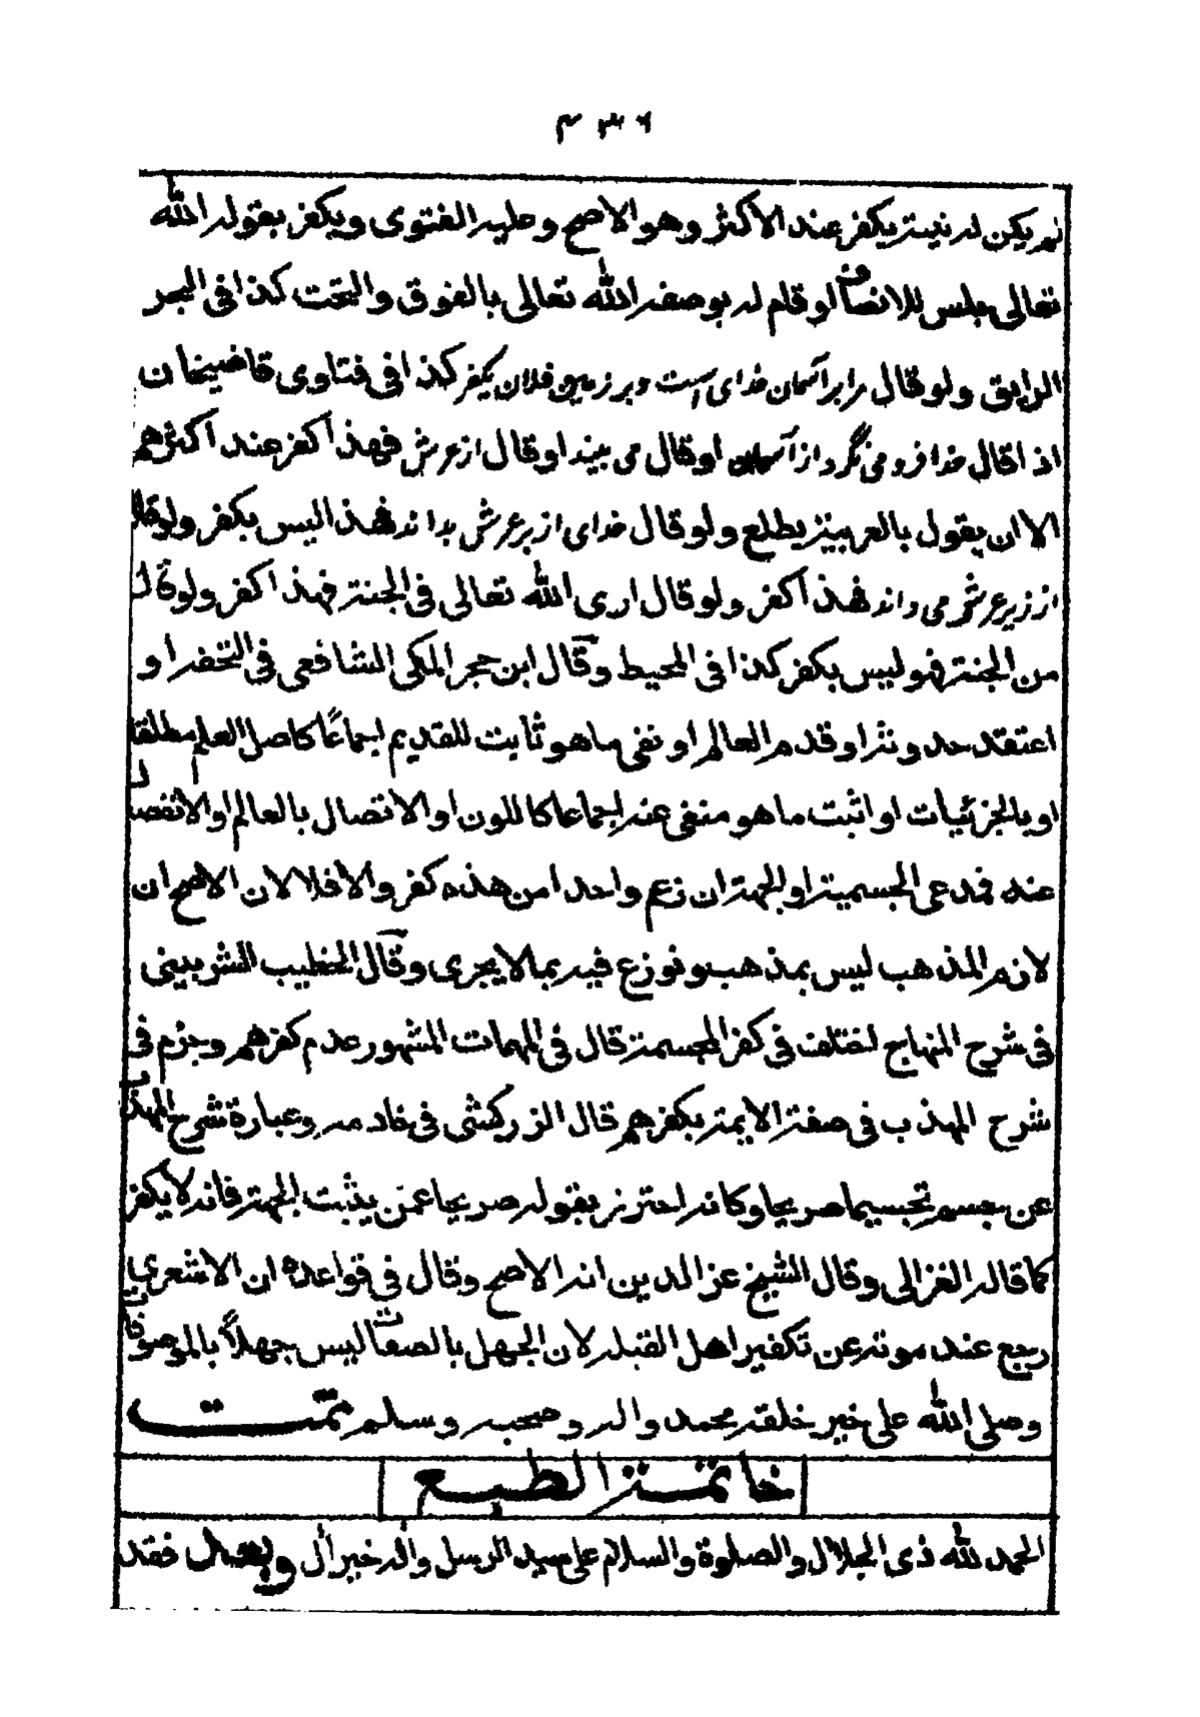 ۴۳۶
لم يكن له نية يكفر عند الاكثر وهو الاصح وعليه الفتوى ويكفر بقوله الله
تعالى جلس للانصاف او قام له بوصفه الله تعالى بالفوق والتحت كذا فى البحر
الرايق ولو قال مرا بر آسمان خداى است و بر زمين فلان يكفر كذا فى فتاوى قاضيخان
اذا قال خدا فرو مى نگرد از آسمان او قال مى بيند او قال از عرش فهذا كفر عند اكثرهم
الا ان يقول بالعربية يطلع ولو قال خداى از بر عرش بداند فهذا ليس بكفر ولو قال
از زير عرش مى داند فهذا كفر ولو قال ارى الله تعالى فى الجنة فهذا كفر ولو قال
من الجنة فهو ليس بكفر كذا فى المحيط وقال ابن حجر المكى الشافعى فى التحفة او
اعتقد حدوثه او قدم العالم او نفى ما هو ثابت للقديم اجماعًا كاصل العلم مطلقا
او بالجزئيات او اثبت ما هو منفى عنه اجماعا كاللون او الاتصال بالعالم او الانفصال
عنه فمدعى الجسمية او الجهة ان زعم واحدا من هذه كفر والا فلا لان الاصح ان
لازم المذهب ليس بمذهب ونوزع فيه بما لا يجرى وقال الخطيب الشربينى
فى شرح المنهاج اختلف فى كفر المجسمة قال فى المهمات المشهور عدم كفرهم وجزم فى
شرح المهذب فى صفة الايمة بكفرهم قال الزركشى فى خادمه وعبارة شرح المهذب
عن يجسم تجسيما صريحا وكانه احترز بقوله صريحا عمن يثبت الجهة فانه لا يكفر
كما قاله الغزالى وقال الشيخ عز الدين انه الاصح وقال فى قواعده ان الاشعرى
رجع عند موته عن تكفير اهل القبله لان الجهل بالصفات ليس جهلاً بالموصوفات
وصلى الله على خير خلقه محمد واله وصحبه وسلم تمت
خاتمة الطبع
الحمد لله ذى الجلال والصلوة والسلام على سيد الرسل واله خير آل وبعد فقد